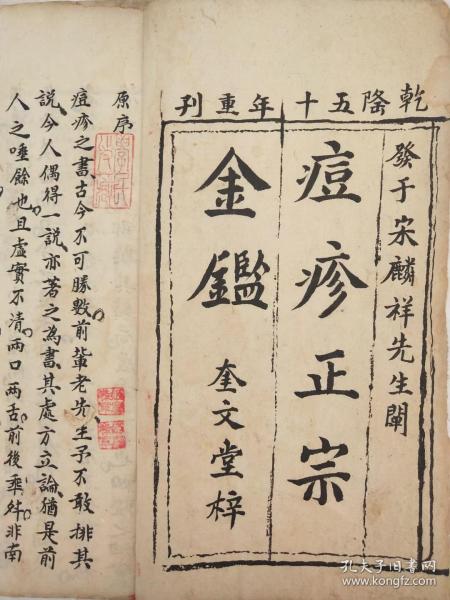 乾隆五十年重刊
發于宋麟祥先生闡
痘疹正宗
金鑑
奎文堂梓
原序
痘疹之書古今不可勝數前輩老先生予不敢排其
說今人偶得一說亦著之為書其處方立論猶是前
人之唾餘也且虛實不清兩口兩舌前後乖舛非南
孔夫子旧书网
www.kongfz.com